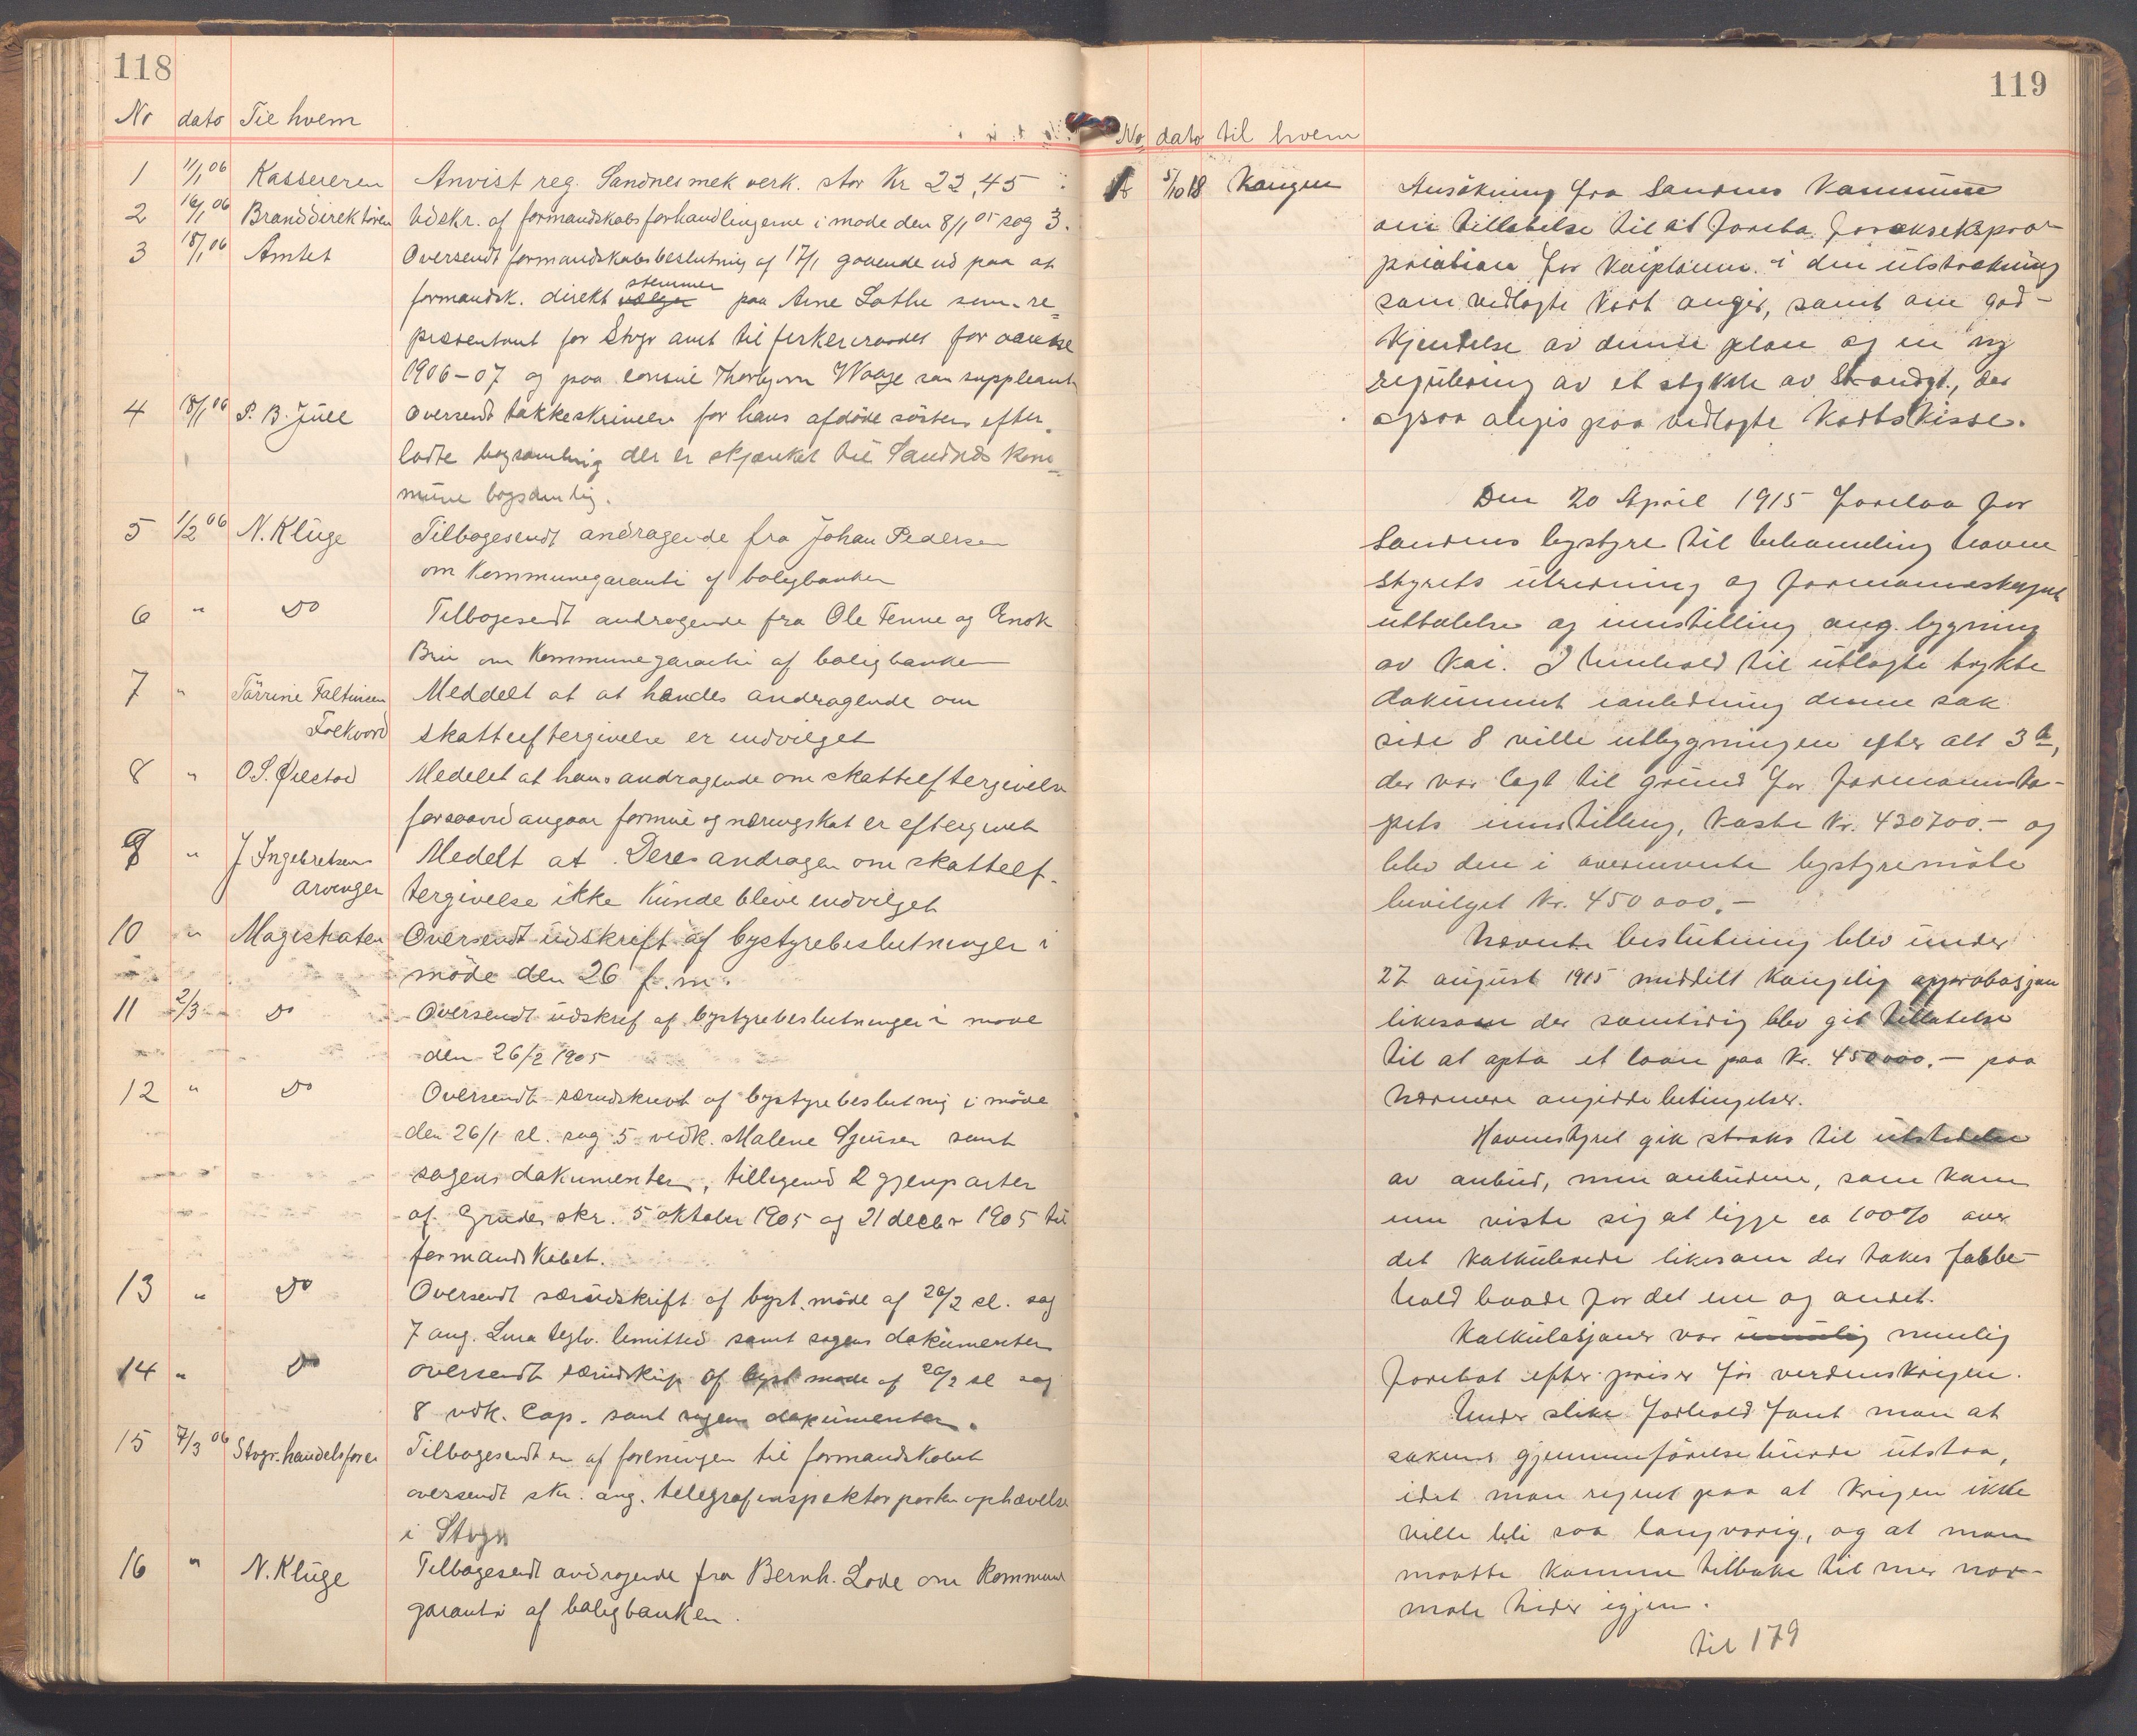 118
No dato Til hvem
1 11/1 06 Kassereren Anvist reg. Sandnes mek verk. stor Kr 22,45
2 16/1 06 Branddirektøren Udskr. af formandskabsforhandlingerne i møde den 8/1 05 sag 3.
3 18/1 06 Amtet Oversendt formandskabsbeslutning af 17/1 gaaende ud paa at
formandsk. direkt vælger stemmer paa Arne Lothe som re-
præsentant for Stvgr amt til for aarene
1906-07 og paa consul Thorbjørn Waage som suppleant
4 18/1 06 P. B. Juell Oversendt takkeskrivelse for hans afdøde søsters efter-
ladte bogsamling der er skjænket til Sandnes kom-
mune bogsamling.
5 1/2 06 N. Kluge Tilbagesendt andragende fra Johan Pedersen
om Kommunegaranti af boligbanken
6 " Do Tilbagesendt andragende fra Ole Tenne og Enok
Brue om Kommunegaranti af boligbanken
7 " Tørrine Faltinsen Meddelt at at hendes andragende om
Folkvord skatteeftergivelse er indvilget
8 " O.S. Øilestad Medelet at hans andragende om skatteeftergivelse
forsaavid angaar formue og næringskat er eftergivet
9 " J Ingebretsens Medelt at Deres andragen om skatteef-
arvinger tergivelse ikke kunde blive indvilget
10 " Magistraten Oversendt udskrift af bystyrebeslutninger i
møde den 26 f.m.
11 2/3 Do Oversendt udskrif af bystyrebeslutninger i møde
den 26/2 1905
12 " Do Oversendt særudskrivt af bystyrebeslutning i møde
den 26/1 sl. sag 5 vedk. Malene Gjeusen samt
sagens dokumenter, tilligemed 2 gjenparter
af Grudes skr. 5 oktober 1905 og 21 decbr 1905 til
formandskabet.
13 " Do Oversendt særudskrift af byst. møde af 26/2 sl. sag
7 ang. Lura teglv. limitted samt sagens dokumenter
14 " Do oversendt særudskrip af byst møde af 26/2 sl sag
8 vdk. Cap. samt sagens dokumenter.
15 7/3 06 Stvgr. handelsforen Tilbagesendt en af foreningen til formandskabet
oversendt skr. ang. telegrafinspektørpostens ophævelse
i Stvgr
16 " N. Kluge Tilbagesendt andragende fra Bernh. Lode om Kommune
garanti af boligbanken.
119
No dato til hvem
1 5/10 18 Kongen Ansökning fra Sandnes Kommune
om tillatelse til at foreta forøksekspro-
priation for kaiplanen i den utstrækning
som vedlagte kart angir, samt om god-
kjendelse av denne plan og en ny
regulering av et stykke av Strandgt., der
ogsaa angis paa vedlagte kartskisse.
Den 20 April 1915 forelaa for
Sandnes bystyre til behandling havne
styrets utredning og formannskapets
uttalelse og innstilling ang. bygning
av kai. I henhold til utlagte trykte
dokument ianledning denne sak
side 8 ville utbygningen efter alt 3 b,
der var lagt til grund for formannska-
pets innstilling, koste kr. 430700.- og
blev den i ovennevnte bystyremøte
bevilget kr. 450 000,-
Nævnte beslutning blev under
27 august 1915 meddelt kongelig approbasjon
likesom der samtidig blev git tillatelse
til at opta et laan paa kr. 450 000.- paa
nærmere angivne betingelser.
Havnestyret gik straks til utstedelse
av anbud, men anbudene, som kom
inn viste sig at ligge ca 100% over
det kalkulerede likesom der tokes forbe-
hold baade for det ene og andet.
Kalkulasjonen var nemlig
foretat efter priser før verdenskrigen.
Under slike forhold fant man at
sakens gjennemförelse burde utstaa,
idet man regnet paa at krigen ikke
ville bli saa langvarig, og at man
maatte komme tilbake til mer nor-
male tider igjen.
til 179